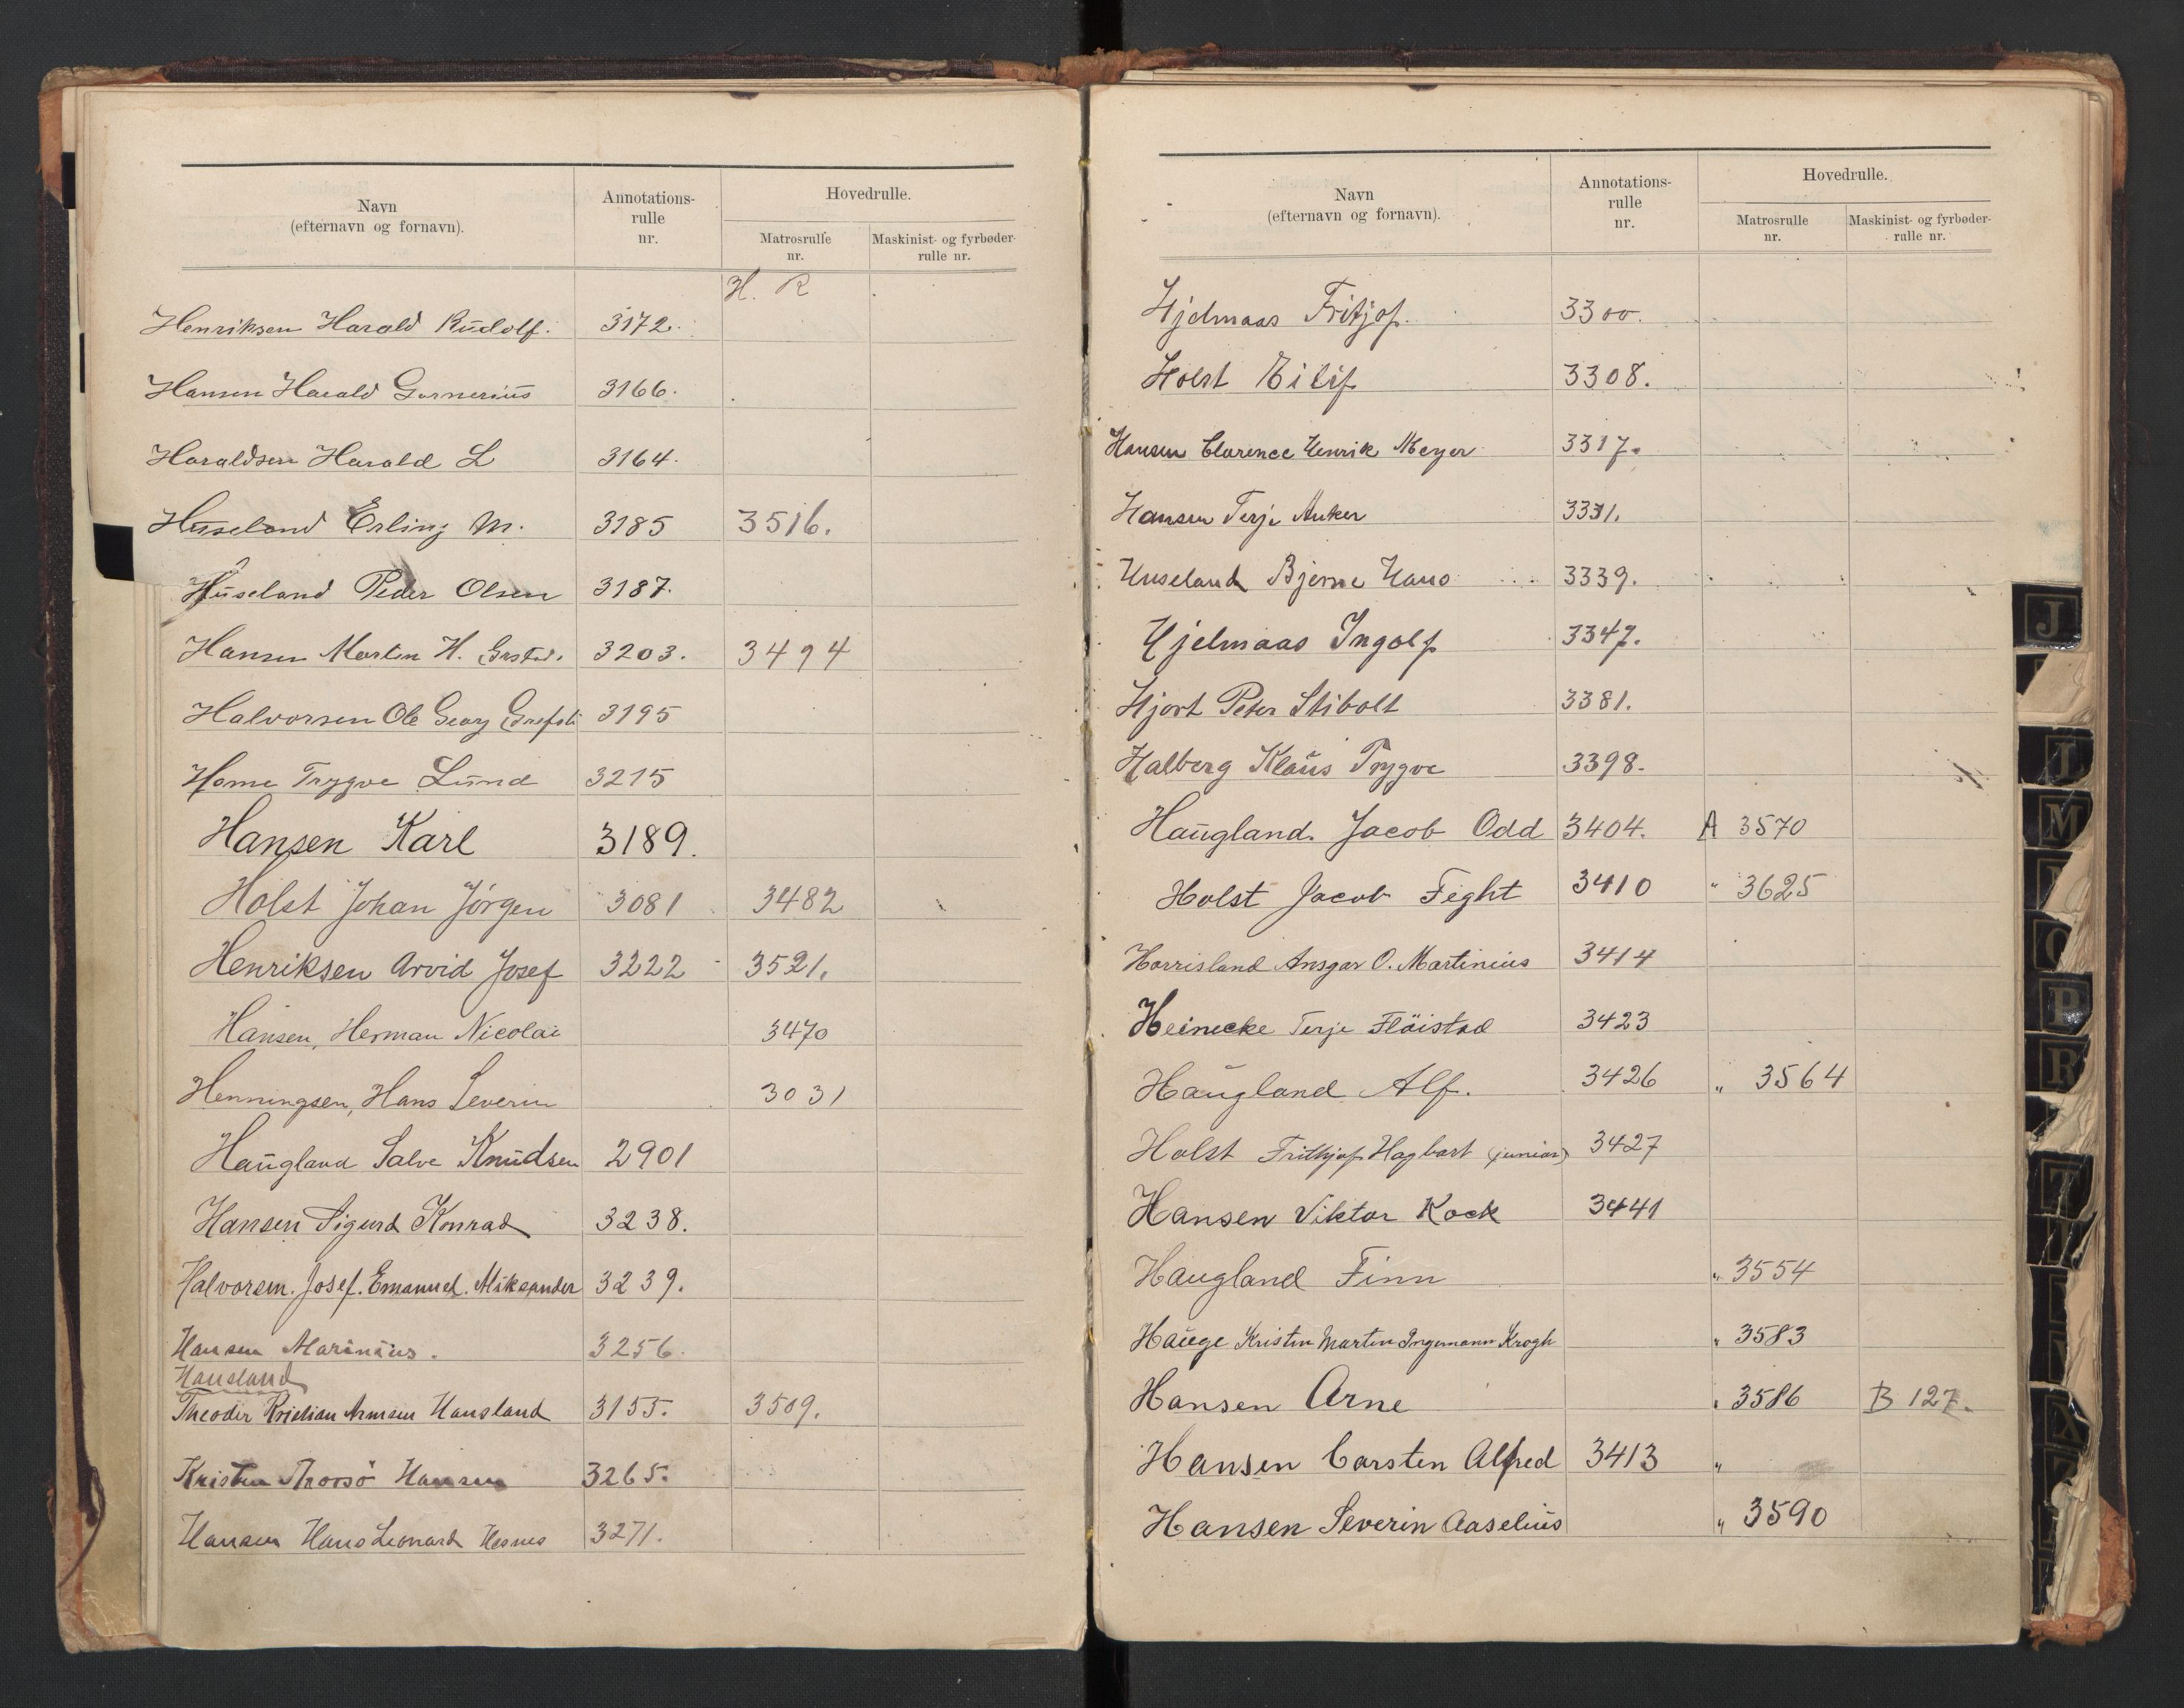 Navn
(efternavn og fornavn).
Annotations-
rulle
nr.
Hovedrulle.
Matrosrulle
nr.
Maskinist- og fyrbøder-
rulle nr.
H. R
Henriksen Harald Rudolf. 3172.
Hansen Harald 3166.
Haraldsen Harald L 3164.
Huseland Erling M. 3185 3516.
Huseland Peder Olsen 3187.
Hansen Martin H. 3203. 3494
Halvorsen Ole Georg 3195
Home Trygve Lund 3215
Hansen Karl 3189.
Holst Johan Jörgen 3081 3482
Henriksen Arvid Josef 3222 3521.
Hansen, Herman Nicolai 3470
Henningsen, Hans Severin 3031
Haugland Salve Knudsen 2901
Hansen Sigurd Konrad 3238.
Halvorsen. Josef. Emanuel. Aleksander 3239.
Hansen Marinius. 3256.
Hausland
Theodor Kristian Hausland 3155. 3509.
Kristen Thorsö Hansen 3265.
Hansen Hans Leonard Hesnes 3271.
Navn
(efternavn og fornavn).
Annotations-
rulle
nr.
Hovedrulle.
Matrosrulle
nr.
Maskinist- og fyrbøder-
rulle nr.
Hjelmaas Fritjof. 3300.
Holst Eilif 3308.
Hansen Clarence Henrik Meyer 3317.
Hansen Terje Anker 3331.
Huseland Bjarne Hans 3339.
Hjelmaas Ingolf 3347.
Hjort Peter Stibolt 3381.
Halberg Klaus Trygve 3398.
Haugland. Jacob Odd 3404. A 3570
Holst Jacob Feght 3410 " 3625
Harrisland Ansgar O. Martinius 3414
Heinecke Terje Flöistad 3423
Haugland Alf. 3426 " 3564
Holst Frithjof Hagbart (junior) 3427
Hansen Viktor Kock 3441
Haugland Finn " 3554
Hauge Kristen Martin Ingemann Krogh " 3583
Hansen Arne " 3586 B 127.
Hansen Carsten Alfred 3413 "
Hansen Severin Aaselius " 3590
J
M
P
R
T
X